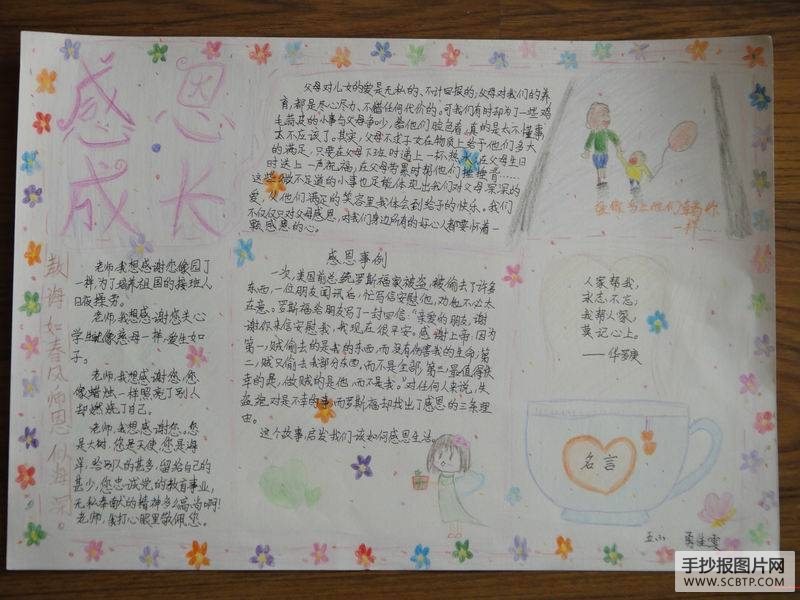 感恩
成长
父母对儿女的爱是无私的、不计回报的；父母对我们的养
育，都是尽心尽力、不惜任何代价的。可我们有时却为了一些鸡
毛蒜皮的小事与父母争吵，给他们脸色看，真的是太不懂事
太不应该了。其实，父母不求子女在物质上给予他们多大
的满足，只要在父母下班时递上一杯热水，在父母生日
时送上一声祝福，在父母劳累时帮他们捶捶背……
这些微不足道的小事也足能体现出我们对父母深深的
爱，从他们满足的笑容里我体会到给予的快乐。我们
不仅仅只对父母感恩，对我们身边所有的好心人都要怀着一
颗感恩的心。
一样
教诲如春风师恩似海深。
老师，我想感谢您，您像园丁
一样，为了培养祖国的接班人
日夜操劳。
老师，我想感谢您，您关心
学生就像慈母一样，爱生如
子。
老师，我想感谢您，您
像蜡烛一样照亮了别人
却燃烧了自己。
老师，我想感谢您，您
是大树，您是天使，您是海
洋，给别人的甚多，留给自己的
甚少，您忠诚党的教育事业，
无私奉献的精神多么高尚啊！
老师，我打心眼里敬佩您。
感恩事例
一次，美国前总统罗斯福家被盗，被偷去了许多
东西，一位朋友闻讯后，忙写信安慰他，劝他不必太
在意。罗斯福给朋友写了一封回信：“亲爱的朋友，谢
谢你来信安慰我，我现在很平安。感谢上帝，因为
第一，贼偷去的是我的东西，而没有伤害我的生命；第
二，贼只偷去我部分东西，而不是全部；第三，最值得庆
幸的是，做贼的是他，而不是我。”对任何人来说，失
盗绝对是不幸的事，而罗斯福却找出了感恩的三条理
由。
这个故事，启发我们该如何感恩生活。
人家帮我，
永志不忘；
我帮人家，
莫记心上。
——华罗庚
名言
手抄报图片网
WWW.SCBTP.COM